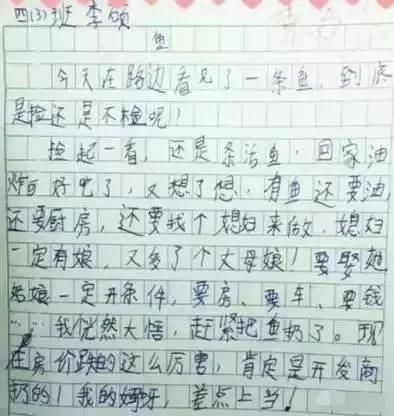 四(3)班 李硕
鱼
今天在路边看见了一条鱼,到底
是捡还是不捡呢!
捡起一看,还是条活鱼.回家油
炸可好吃了,又想了想.有鱼还要油,
还要厨房,还要找个媳妇来做.媳妇
一定有娘,又多了个丈母娘!要娶她
姑娘一定开条件,要房、要车、要钱
……我恍然大悟,赶紧把鱼扔了。现
在房价跌的这么厉害,肯定是开发商
扔的!我的妈呀,差点上当!